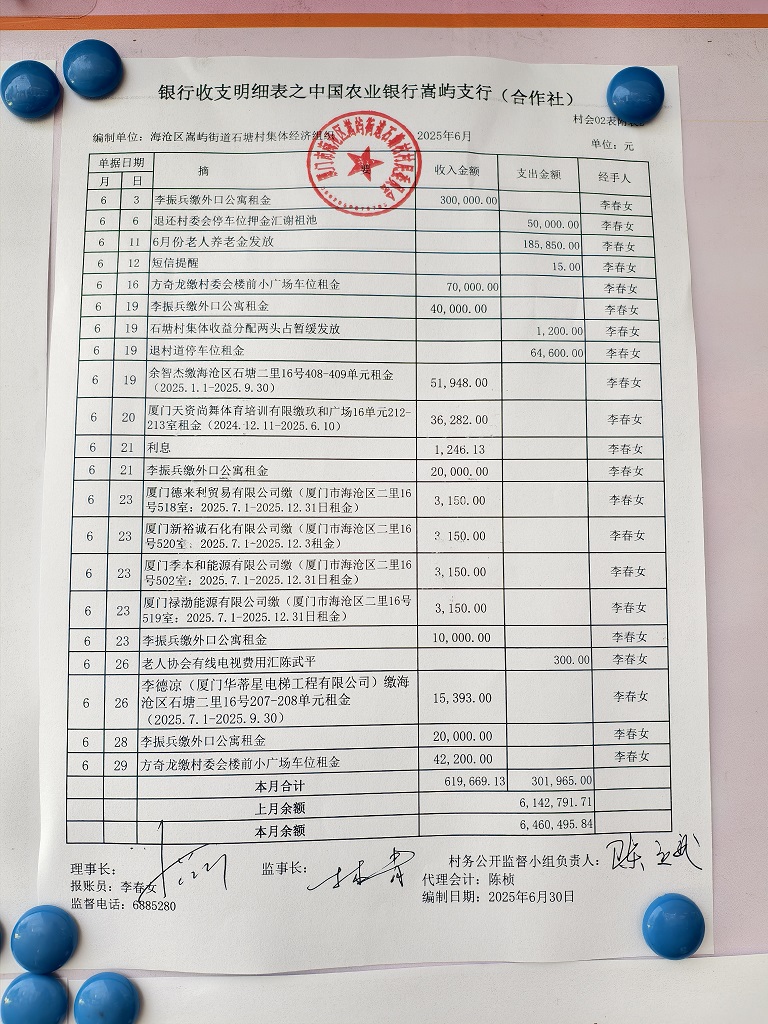 银行收支明细表之中国农业银行嵩屿支行（合作社）
村会02表附表
编制单位：海沧区嵩屿街道石塘村集体经济组织 2025年6月 单位：元
单据日期 摘 要 收入金额 支出金额 经手人
月 日
6 3 李振兵缴外口公寓租金 300,000.00 李春女
6 6 退还村委会停车位押金汇谢祖池 50,000.00 李春女
6 11 6月份老人养老金发放 185,850.00 李春女
6 12 短信提醒 15.00 李春女
6 16 方奇龙缴村委会楼前小广场车位租金 70,000.00 李春女
6 19 李振兵缴外口公寓租金 40,000.00 李春女
6 19 石塘村集体收益分配两头占暂缓发放 1,200.00 李春女
6 19 退村道停车位租金 64,600.00 李春女
6 19 余智杰缴海沧区石塘二里16号408-409单元租金
（2025.1.1-2025.9.30） 51,948.00 李春女
6 20 厦门天资尚舞体育培训有限缴玖和广场16单元212-
213室租金（2024.12.11-2025.6.10） 36,282.00 李春女
6 21 利息 1,246.13 李春女
6 21 李振兵缴外口公寓租金 20,000.00 李春女
6 23 厦门德来利贸易有限公司缴（厦门市海沧区二里16
号518室：2025.7.1-2025.12.31日租金） 3,150.00 李春女
6 23 厦门新裕诚石化有限公司缴（厦门市海沧区二里16
号520室：2025.7.1-2025.12.3租金） 3,150.00 李春女
6 23 厦门季本和能源有限公司缴（厦门市海沧区二里16
号502室：2025.7.1-2025.12.31日租金） 3,150.00 李春女
6 23 厦门禄渤能源有限公司缴（厦门市海沧区二里16号
519室：2025.7.1-2025.12.31日租金） 3,150.00 李春女
6 23 李振兵缴外口公寓租金 10,000.00 李春女
6 26 老人协会有线电视费用汇陈武平 300.00 李春女
6 26 李德凉（厦门华蒂星电梯工程有限公司）缴海
沧区石塘二里16号207-208单元租金
（2025.7.1-2025.9.30） 15,393.00 李春女
6 28 李振兵缴外口公寓租金 20,000.00 李春女
6 29 方奇龙缴村委会楼前小广场车位租金 42,200.00 李春女
本月合计 619,669.13 301,965.00
上月余额 6,142,791.71
本月余额 6,460,495.84
理事长： 监事长： 村务公开监督小组负责人：
报账员：李春女 代理会计：陈桢
监督电话：6885280 编制日期：2025年6月30日